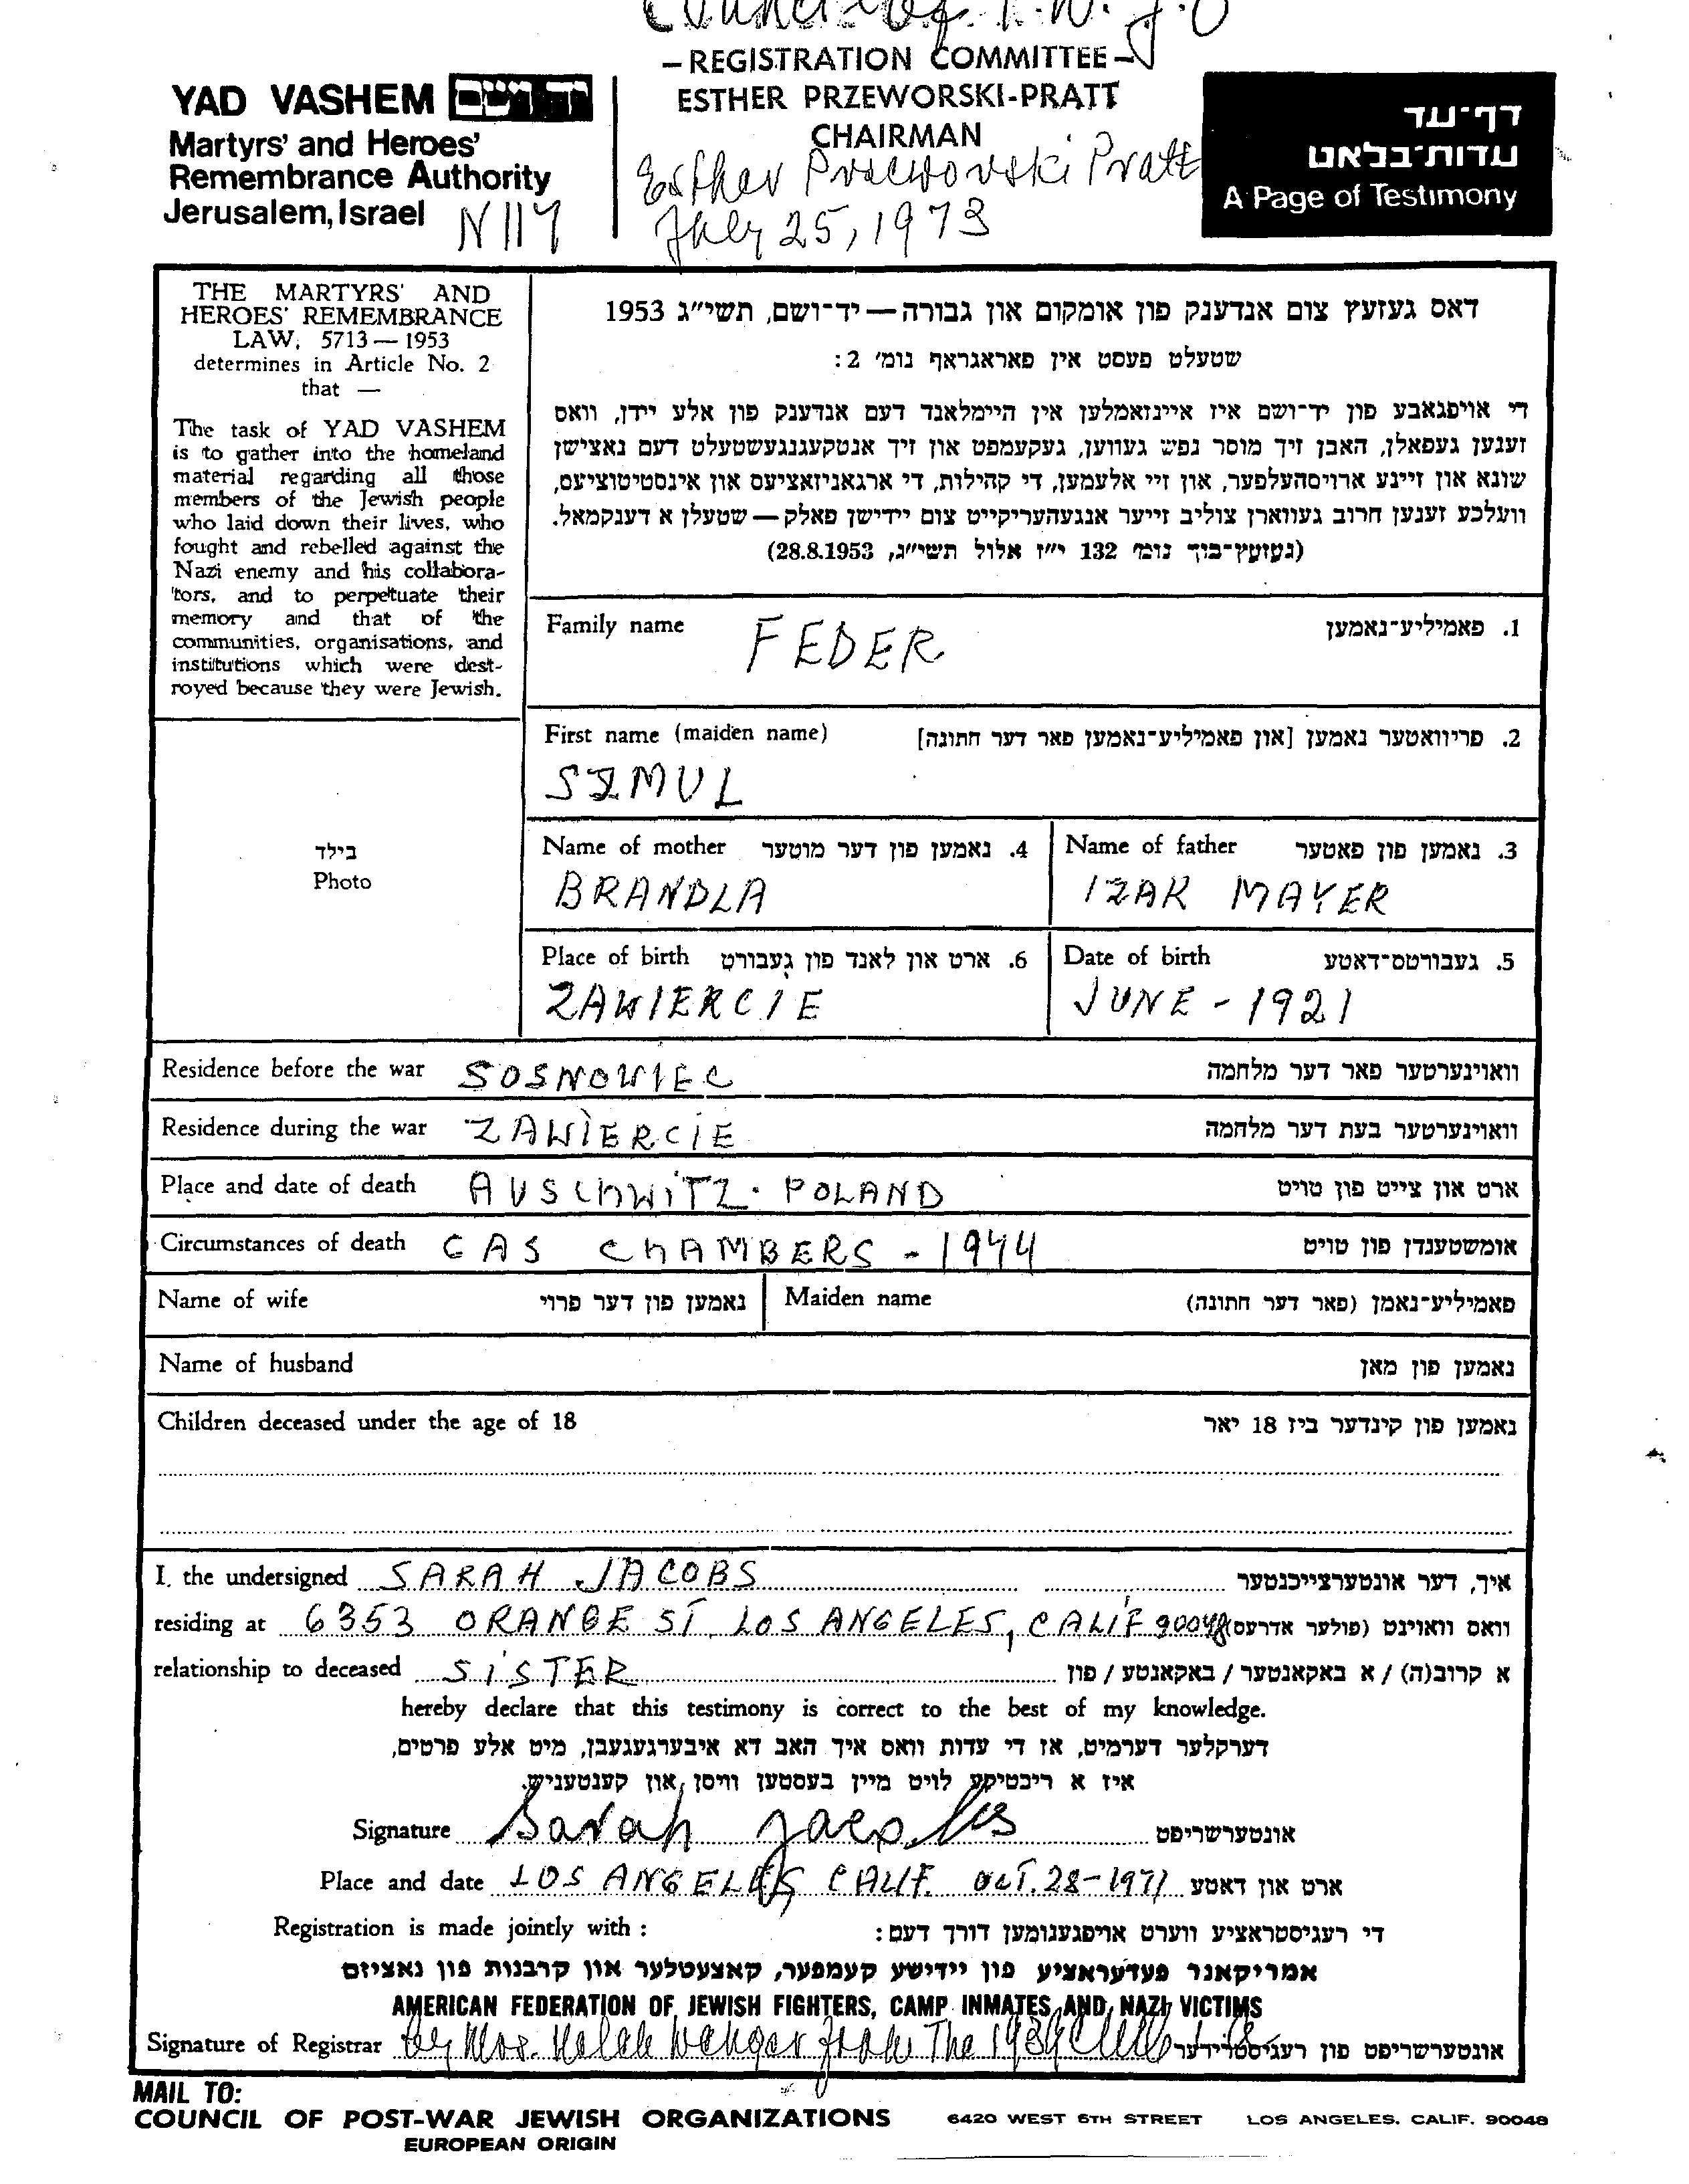 – REGISTRATION COMMITTEE –
YAD VASHEM יד ושם
ESTHER PRZEWORSKI-PRATT
CHAIRMAN
Martyrs' and Heroes'
Remembrance Authority
Jerusalem, Israel
N 117
Esther Przeworski Pratt
July 25, 1973
דף־עד
עדות־בלאט
A Page of Testimony
THE MARTYRS' AND
HEROES' REMEMBRANCE
LAW, 5713 — 1953
determines in Article No. 2
that —
The task of YAD VASHEM
is to gather into the homeland
material regarding all those
members of the Jewish people
who laid down their lives, who
fought and rebelled against the
Nazi enemy and his collabora-
tors, and to perpetuate their
memory and that of the
communities, organisations, and
institutions which were dest-
royed because they were Jewish.
דאס געזעץ צום אנדענק פון אומקום און גבורה — יד־ושם, תשי״ג 1953
שטעלט פעסט אין פאראגראף נומ׳ 2:
די אויפגאבע פון יד־ושם איז איינזאמלען אין היימלאנד דעם אנדענק פון אלע יידן, וואס
זענען געפאלן, האבן זיך מוסר נפש געווען, געקעמפט און זיך אנטקעגנגעשטעלט דעם נאצישן
שונא און זיינע ארויסהעלפער, און זיי אלעמען, די קהילות, די ארגאניזאציעס און אינסטיטוציעס,
וועלכע זענען חרוב געווארן צוליב זייער אנגעהעריקייט צום יידישן פאלק — שטעלן א דענקמאל.
(געזעץ־בוך נומ׳ 132 י״ז אלול תשי״ג, 28.8.1953)
Family name FEDER 1. פאמיליע־נאמען
First name (maiden name) 2. פריוואטער נאמען [און פאמיליע־נאמען פאר דער חתונה]
SZMUL
בילד
Photo
Name of mother 4. נאמען פון דער מוטער
BRANDLA
Name of father 3. נאמען פון פאטער
IZAK MAYER
Place of birth 6. ארט און לאנד פון געבורט
ZAWIERCIE
Date of birth 5. געבורטס־דאטע
JUNE - 1921
Residence before the war SOSNOWIEC וואוינערטער פאר דער מלחמה
Residence during the war ZAWIERCIE וואוינערטער בעת דער מלחמה
Place and date of death AUSCHWITZ. POLAND ארט און צייט פון טויט
Circumstances of death GAS CHAMBERS - 1944 אומשטענדן פון טויט
Name of wife נאמען פון דער פרוי Maiden name פאמיליע־נאמן (פאר דער חתונה)
Name of husband נאמען פון מאן
Children deceased under the age of 18 נאמען פון קינדער ביז 18 יאר
I, the undersigned SARAH JACOBS איך, דער אונטערצייכנטער
residing at 6353 ORANGE ST. LOS ANGELES, CALIF 90048 וואס וואוינט (פולער אדרעס)
relationship to deceased SISTER א קרוב(ה) / א באקאנטער / באקאנטע / פון
hereby declare that this testimony is correct to the best of my knowledge.
דערקלער דערמיט, אז די עדות וואס איך האב דא איבערגעגעבן, מיט אלע פרטים,
איז א ריכטיקע לויט מיין בעסטען וויסן און קענטעניש.
Signature Sarah Jacobs אונטערשריפט
Place and date LOS ANGELES CALIF. OCT. 28-1971 ארט און דאטע
Registration is made jointly with : די רעגיסטראציע ווערט אויפגענומען דורך דעם:
אמריקאנר פעדעראציע פון יידישע קעמפער, קאצעטלער און קרבנות פון נאציזם
AMERICAN FEDERATION OF JEWISH FIGHTERS, CAMP INMATES AND NAZI VICTIMS
Signature of Registrar by Mrs. from The 1939 Club אונטערשריפט פון רעגיסטרידער
MAIL TO:
COUNCIL OF POST-WAR JEWISH ORGANIZATIONS 6420 WEST 6TH STREET LOS ANGELES. CALIF. 90048
EUROPEAN ORIGIN